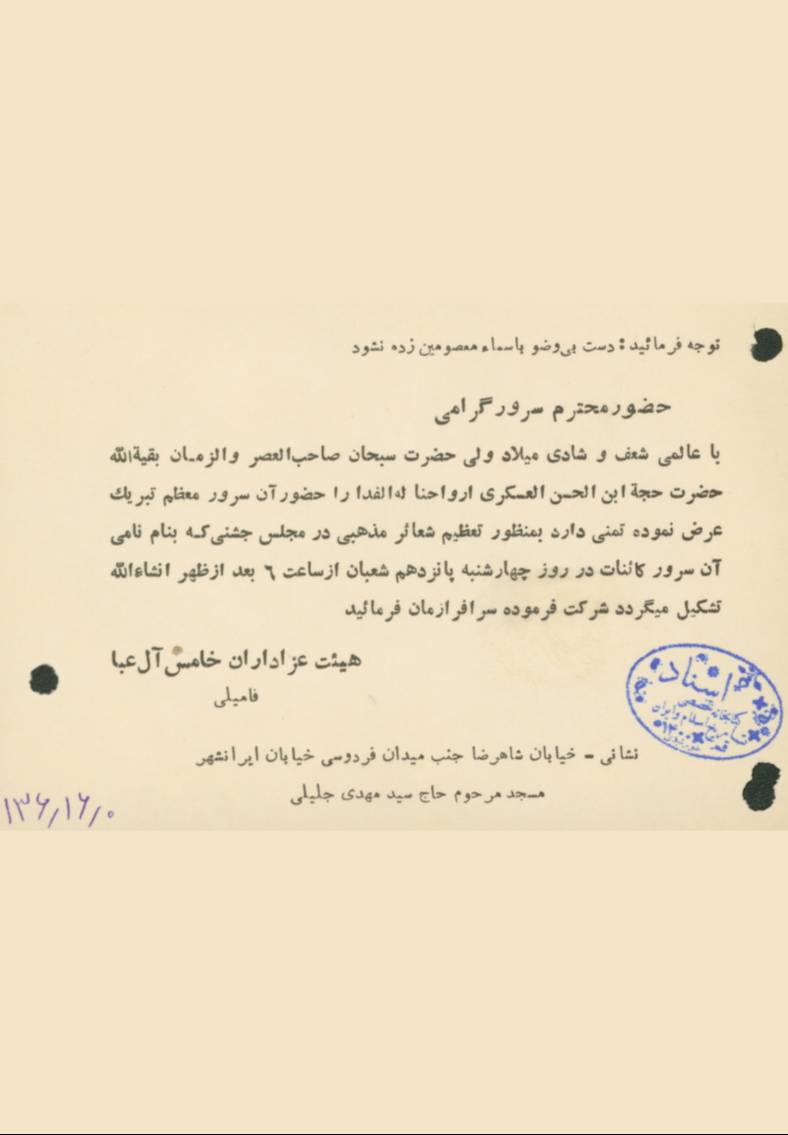 توجه فرمائید: دست بی‌وضو باسماء معصومین زده نشود
حضور محترم سرور گرامی
با عالمی شعف و شادی میلاد ولی حضرت سبحان صاحب‌العصر والزمان بقیةالله
حضرت حجة ابن الحسن العسکری ارواحنا له‌الفدا را حضور آن سرور معظم تبریك
عرض نموده تمنی دارد بمنظور تعظیم شعائر مذهبی در مجلس جشنی‌که بنام نامی
آن سرور کائنات در روز چهارشنبه پانزدهم شعبان ازساعت ۶ بعد ازظهر انشاءالله
تشکیل میگردد شرکت فرموده سرافرازمان فرمائید
هیئت عزاداران خامس آل عبا
فامیلی
اسناد
کتابخانه تخصصی
تاریخ اسلام و ایران
نشانی - خیابان شاهرضا جنب میدان فردوسی خیابان ایرانشهر
مسجد مرحوم حاج سید مهدی جلیلی
۱۳۶٫۱۶٫۰